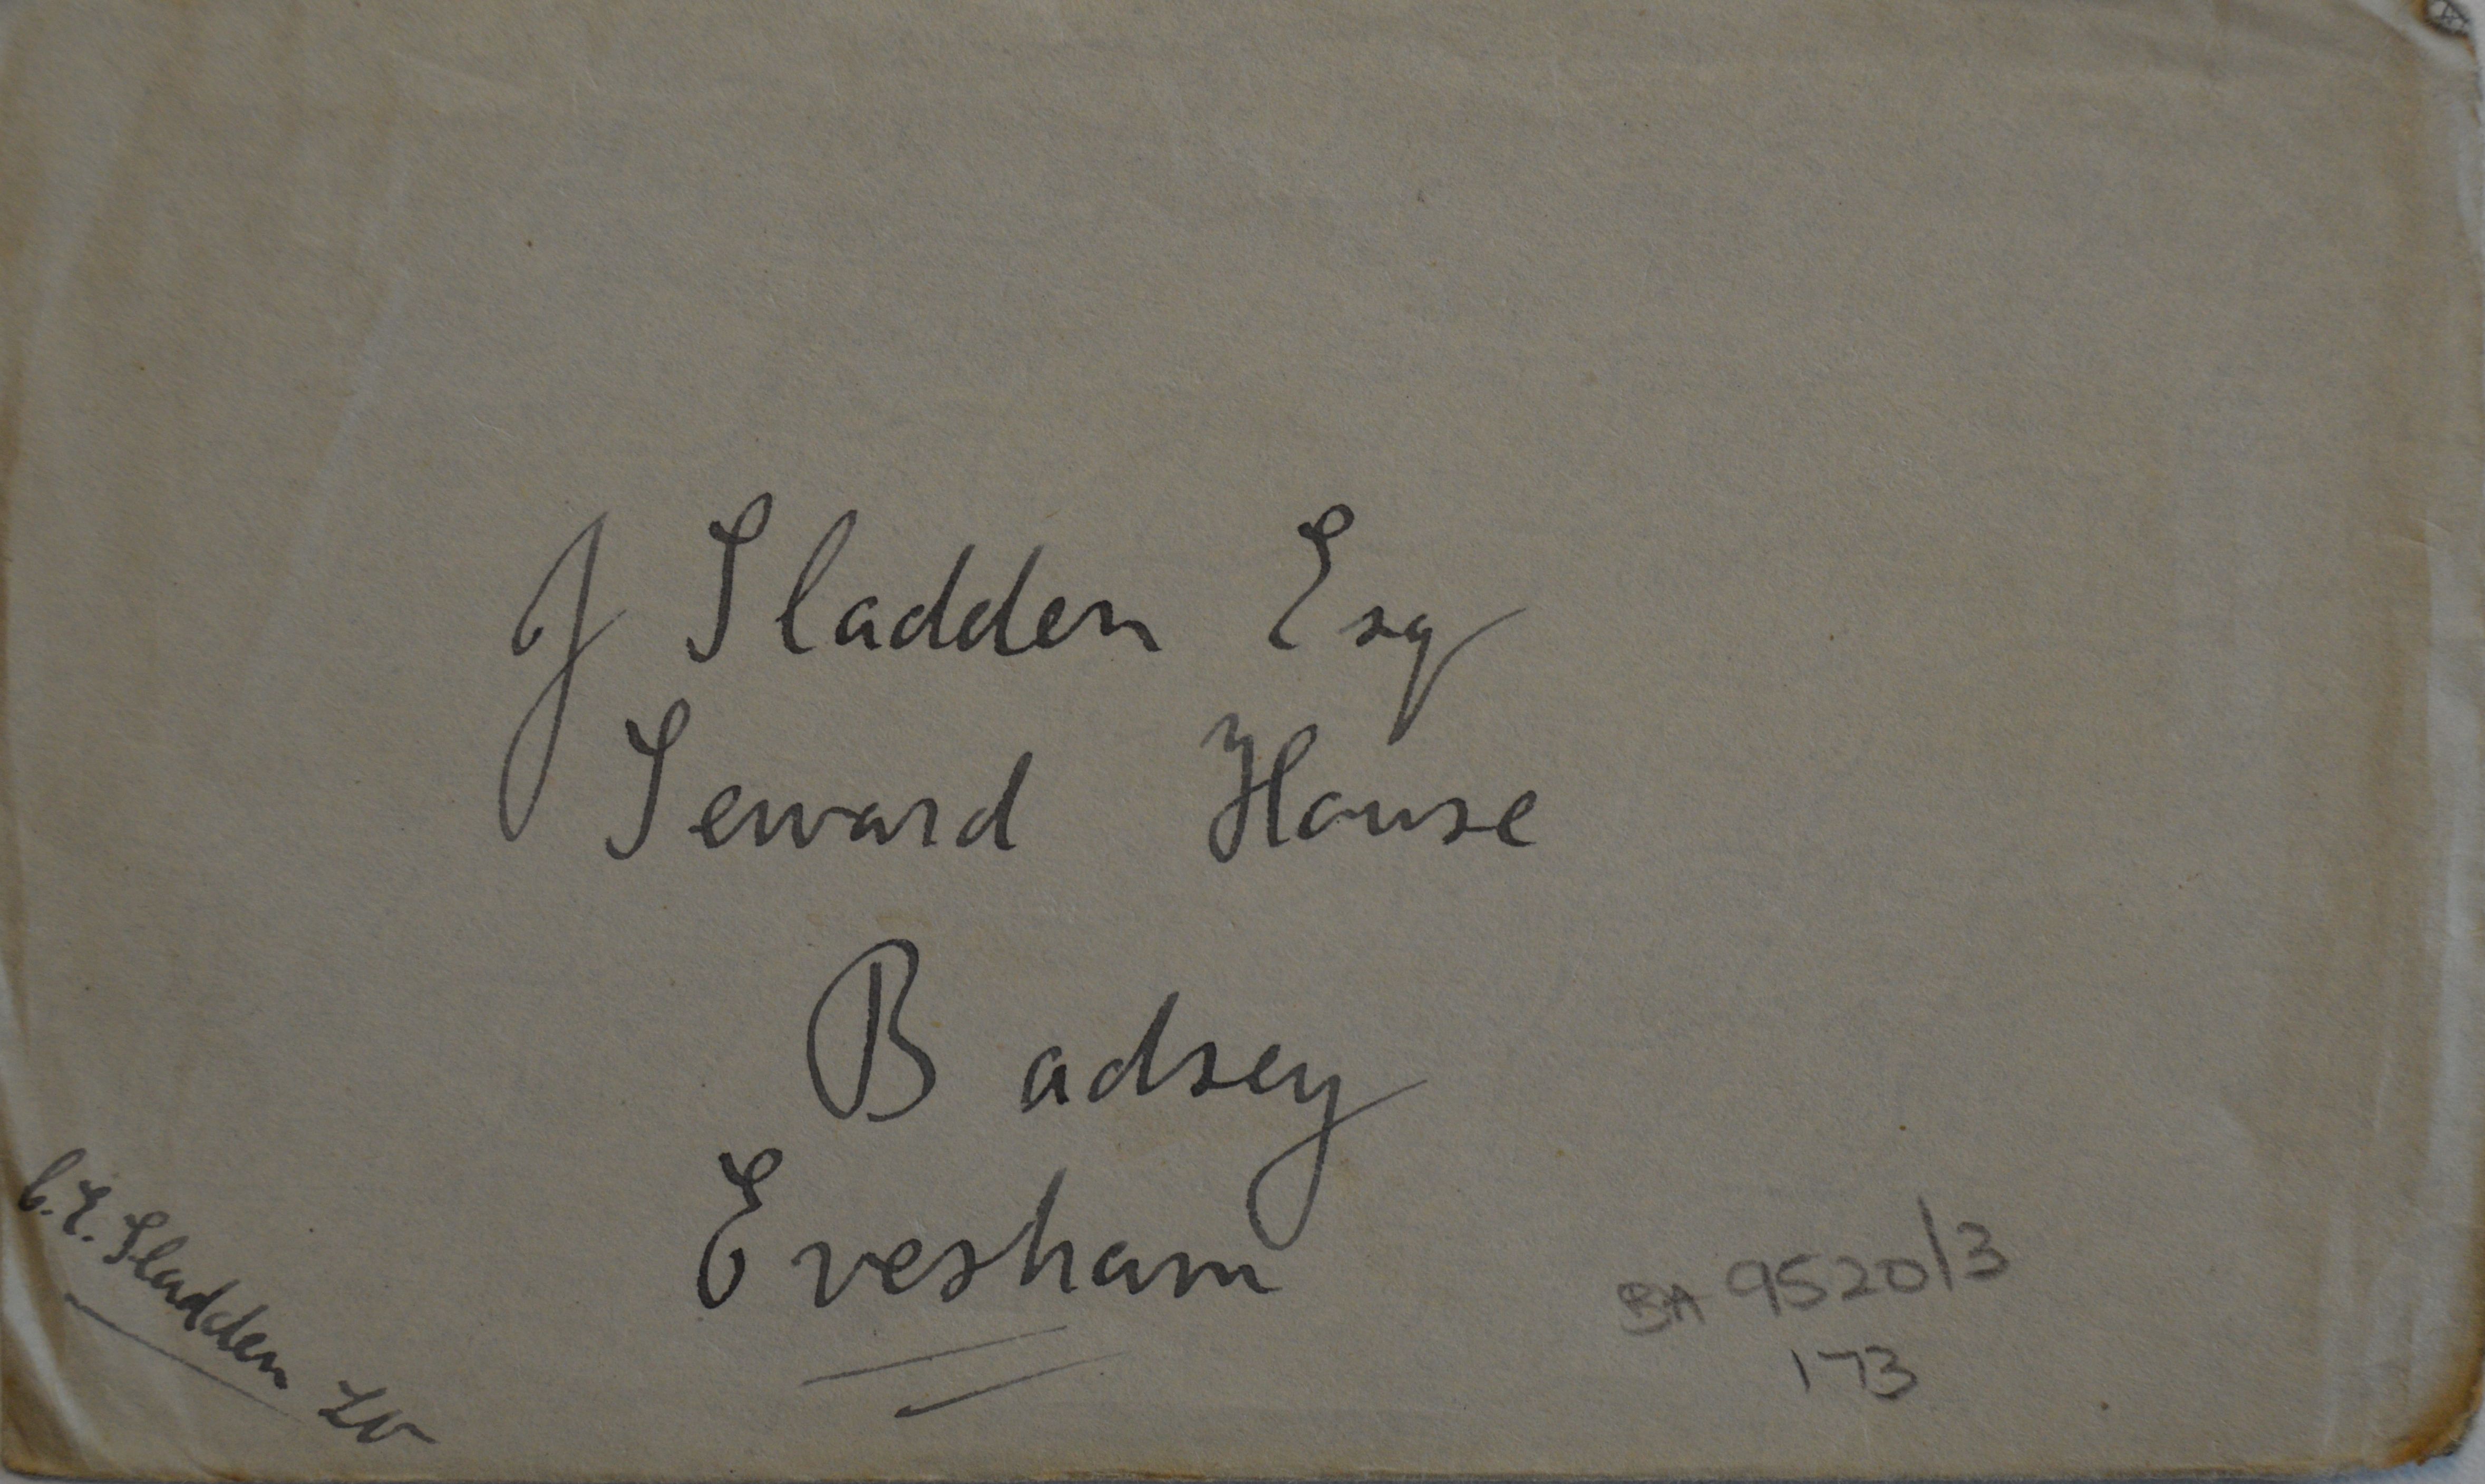 J Sladden Esq
Seward House
Badsey
Evesham
C.E. Sladden
BA 9520/3
173